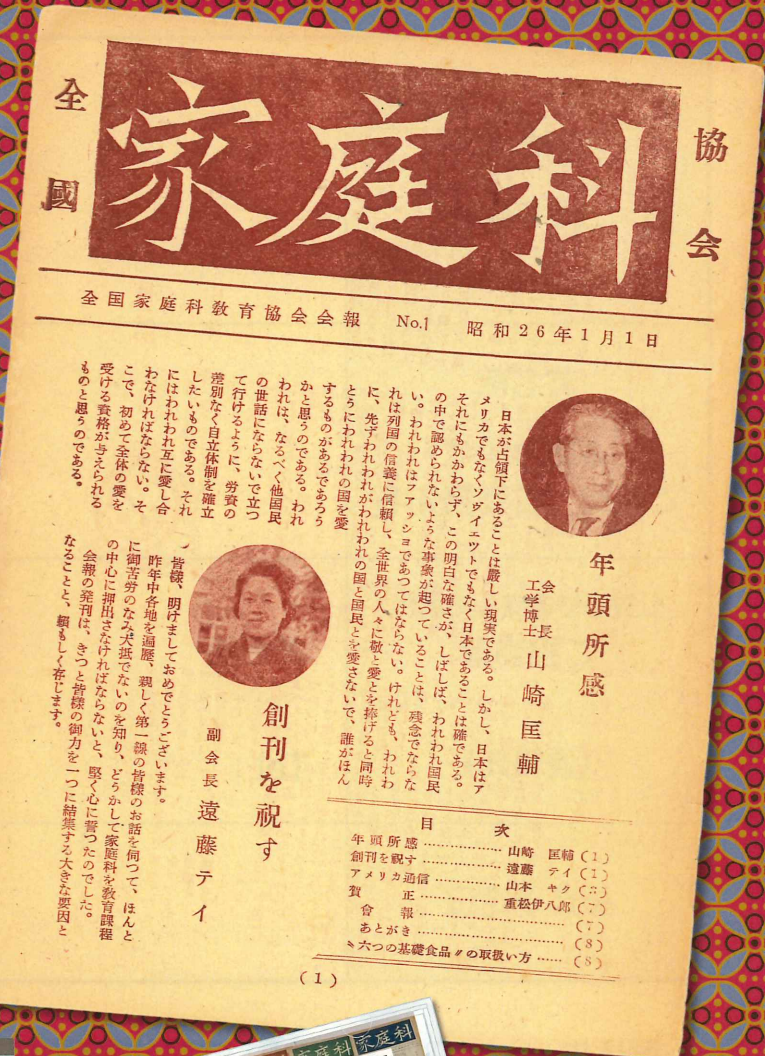 全國
家庭科
協会
全国家庭科教育協会会報 No.1 昭和26年1月1日
年頭所感
会長
工学博士
山崎匡輔
日本が占領下にあることは厳しい現実である。しかし、日本はア
メリカでもなくソヴイエツトでもなく日本であることは確である。
それにもかかわらず、この明白な確さが、しばしば、われわれ国民
の中で認められないような事象が起つていることは、残念でならな
い。われわれはファッショであつてはならない。けれども、われわ
れは列国の信義に信頼し、全世界の人々に敬と愛とを捧げると同時
に、先ずわれわれがわれわれの国と国民とを愛さないで、誰がほん
とうにわれわれの国を愛
するものがあるであろう
かと思うのである。われ
われは、なるべく他国民
の世話にならないで立つ
て行けるように、労資の
差別なく自立体制を確立
したいものである。それ
にはわれわれ互に愛し合
わなければならない。そ
こで、初めて全体の愛を
受ける資格が与えられる
ものと思うのである。
創刊を祝す
副会長 遠藤テイ
皆様、明けましておめでとうございます。
昨年中各地を遍歴、親しく第一線の皆様のお話を伺つて、ほんと
に御苦労のなみ大抵でないのを知り、どうかして家庭科を教育課程
の中心に押出さなければならないと、堅く心に誓つたのでした。
会報の発刊は、きつと皆様の御力を一つに結集する大きな要因と
なることと、頼もしく存じます。
目次
年頭所感………………山崎 匡輔 (1)
創刊を祝す………………遠藤 テイ (1)
アメリカ通信………………山本 キク
賀正………………重松伊八郎 (7)
会報………………(7)
あとがき………………(8)
〝六つの基礎食品〟の取扱い方……(8)
(1)
家庭科
家庭科